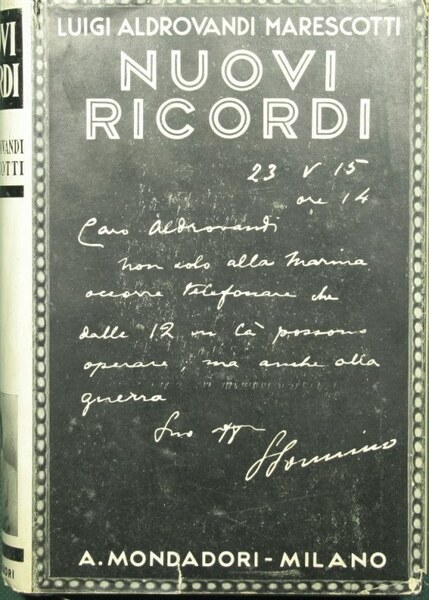 LUIGI ALDROVANDI MARESCOTTI
NUOVI
RICORDI
23 V 15
ore 14
Caro Aldrovandi
non solo alla Marina
occorre telefonare che
dalle 12 in là possono
operare, ma anche alla
guerra
Suo aff
SSonnino
A. MONDADORI - MILANO
VI
RDI
OVANDI
COTTI
DORI